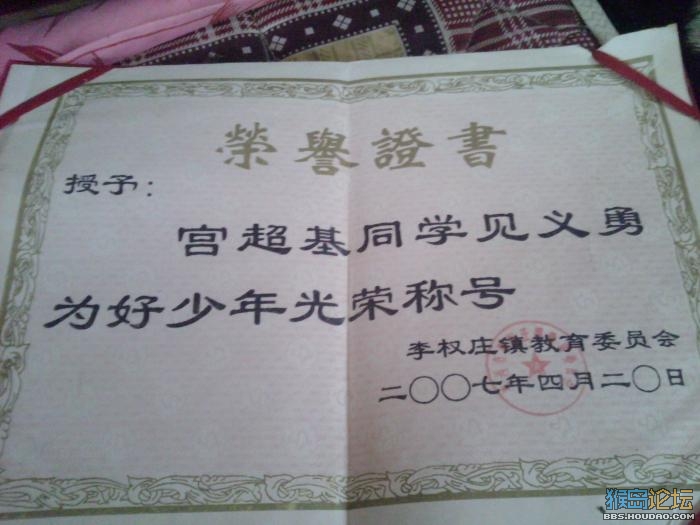 榮譽證書
授予：
宫超基同学见义勇
为好少年光荣称号
李权庄镇教育委员会
二〇〇七年四月二〇日
猴岛论坛
BBS.HOUDAO.COM